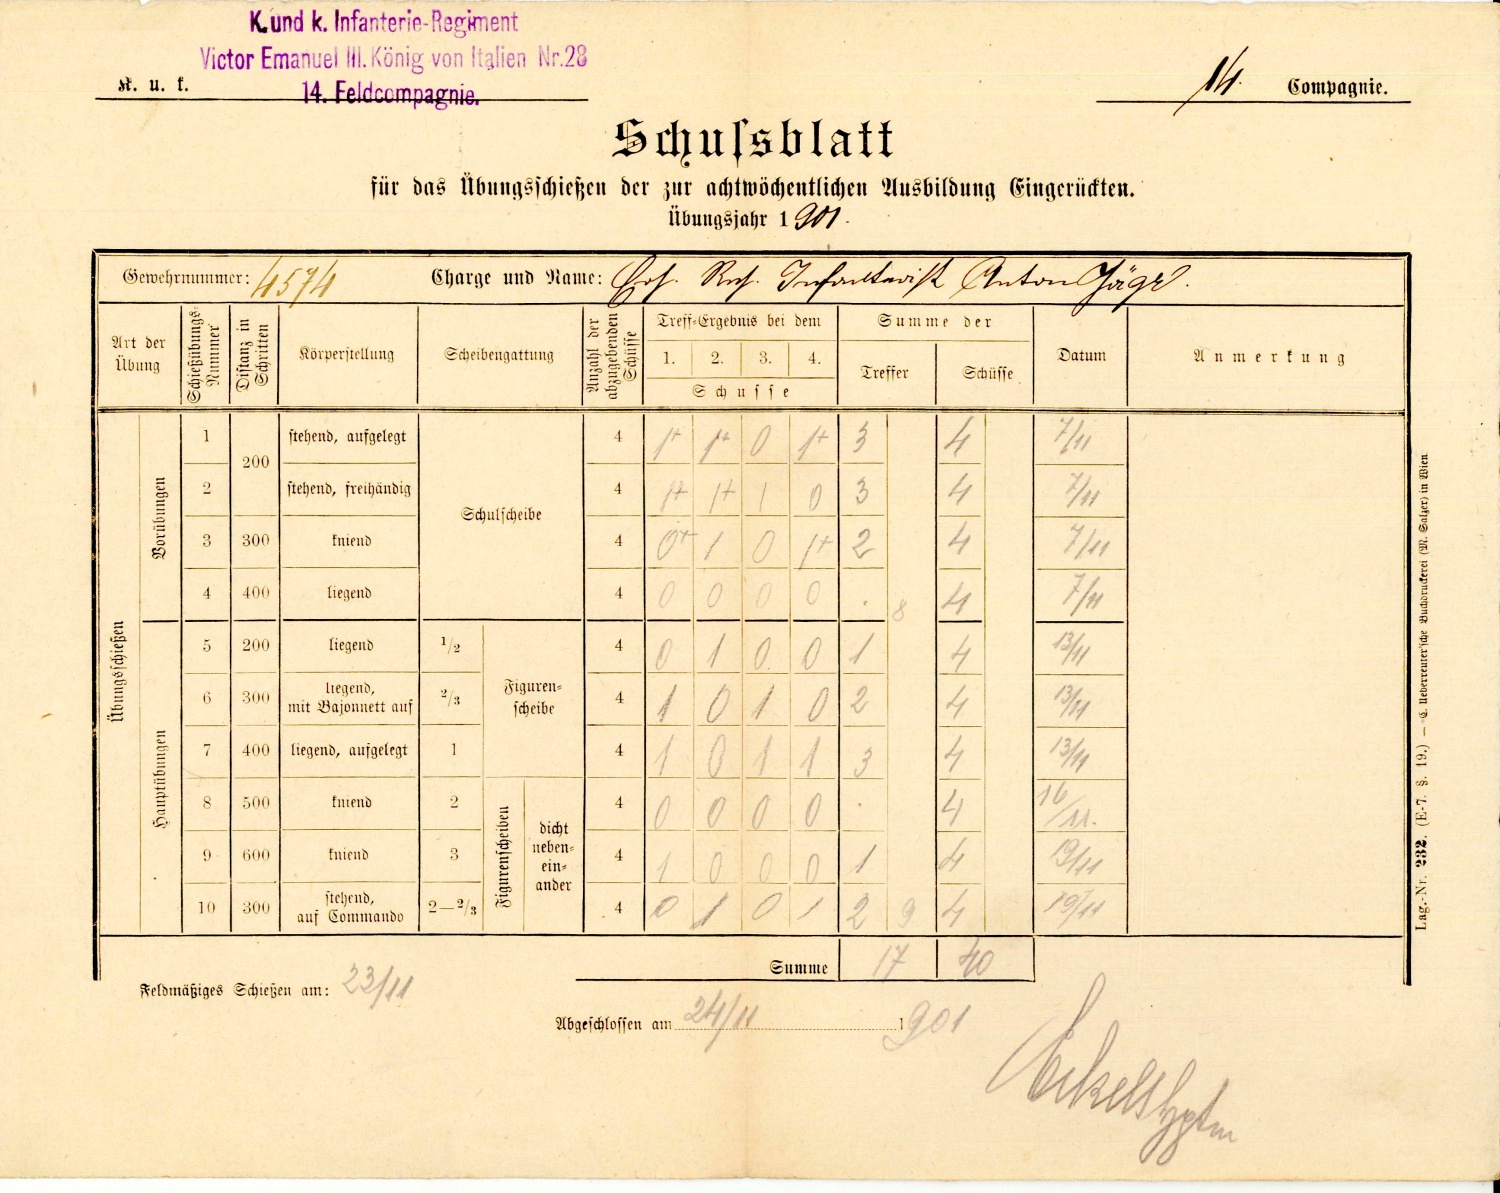 K. und k. Infanterie-Regiment
Victor Emanuel III. König von Italien Nr. 28
14. Feldcompagnie.
K. u. k.
14. Compagnie.
Schussblatt
für das Übungsschießen der zur achtwöchentlichen Ausbildung Eingerückten.
Übungsjahr 1901.
Gewehrnummer: 4574 Charge und Name: Infanterist Anton Jäger.
Art der Übung Schießübungs-Nummer Distanz in Schritten Körperstellung Scheibengattung Anzahl der abzugebenden Schüsse Treff-Ergebnis bei dem 1. 2. 3. 4. Schusse Summe der Treffer Schüsse Datum Anmerkung
Übungsschießen
Vorübungen
1 200 stehend, aufgelegt Schulscheibe 4 1+ 1+ 0 1+ 3 4 7/11
2 stehend, freihändig 4 1+ 1+ 1 0 3 4 7/11
3 300 kniend 4 0+ 1 0 1+ 2 4 7/11
4 400 liegend 4 0 0 0 0 . 8 4 7/11
Hauptübungen
5 200 liegend 1/2 Figuren-scheibe 4 0 1 0 0 1 4 13/11
6 300 liegend, mit Bajonnett auf 2/3 4 1 0 1 0 2 4 13/11
7 400 liegend, aufgelegt 1 4 1 0 1 1 3 4 13/11
8 500 kniend 2 Figurenscheiben dicht neben-ein-ander 4 0 0 0 0 . 4 16/11.
9 600 kniend 3 4 1 0 0 0 1 4 19/11
10 300 stehend, auf Commando 2—2/3 4 0 1 0 1 2 9 4 19/11
Summe 17 40
Feldmäßiges Schießen am: 23/11
Abgeschlossen am 24/11 1901
Lag.-Nr. 232. (E-7. §. 19.) — C. Ueberreuter'sche Buchdruckerei (M. Salzer) in Wien